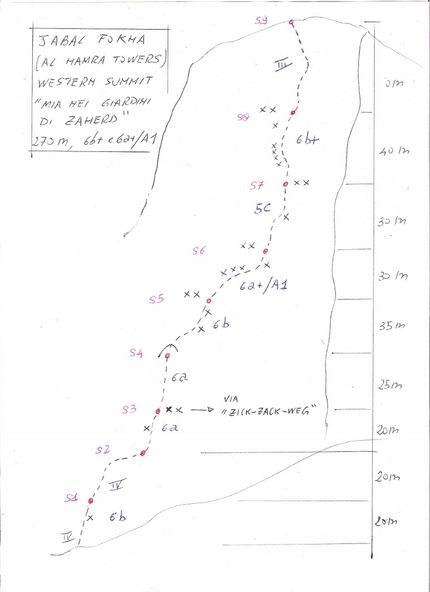 JABAL FOKHA
(AL HAMRA TOWERS)
WESTERN SUMMIT
"MIA NEI GIARDINI
DI ZAHERD"
270 m, 6b+ e 6a+/A1
S9
III
50m
S8
6b+
40 m
S7
5C
30 m
S6
30 m
6a+/A1
S5
6b
35m
S4
6a
25m
S3
VIA
"ZICK-ZACK-WEG"
6a
20m
S2
20m
IV
S1
6b
20m
IV